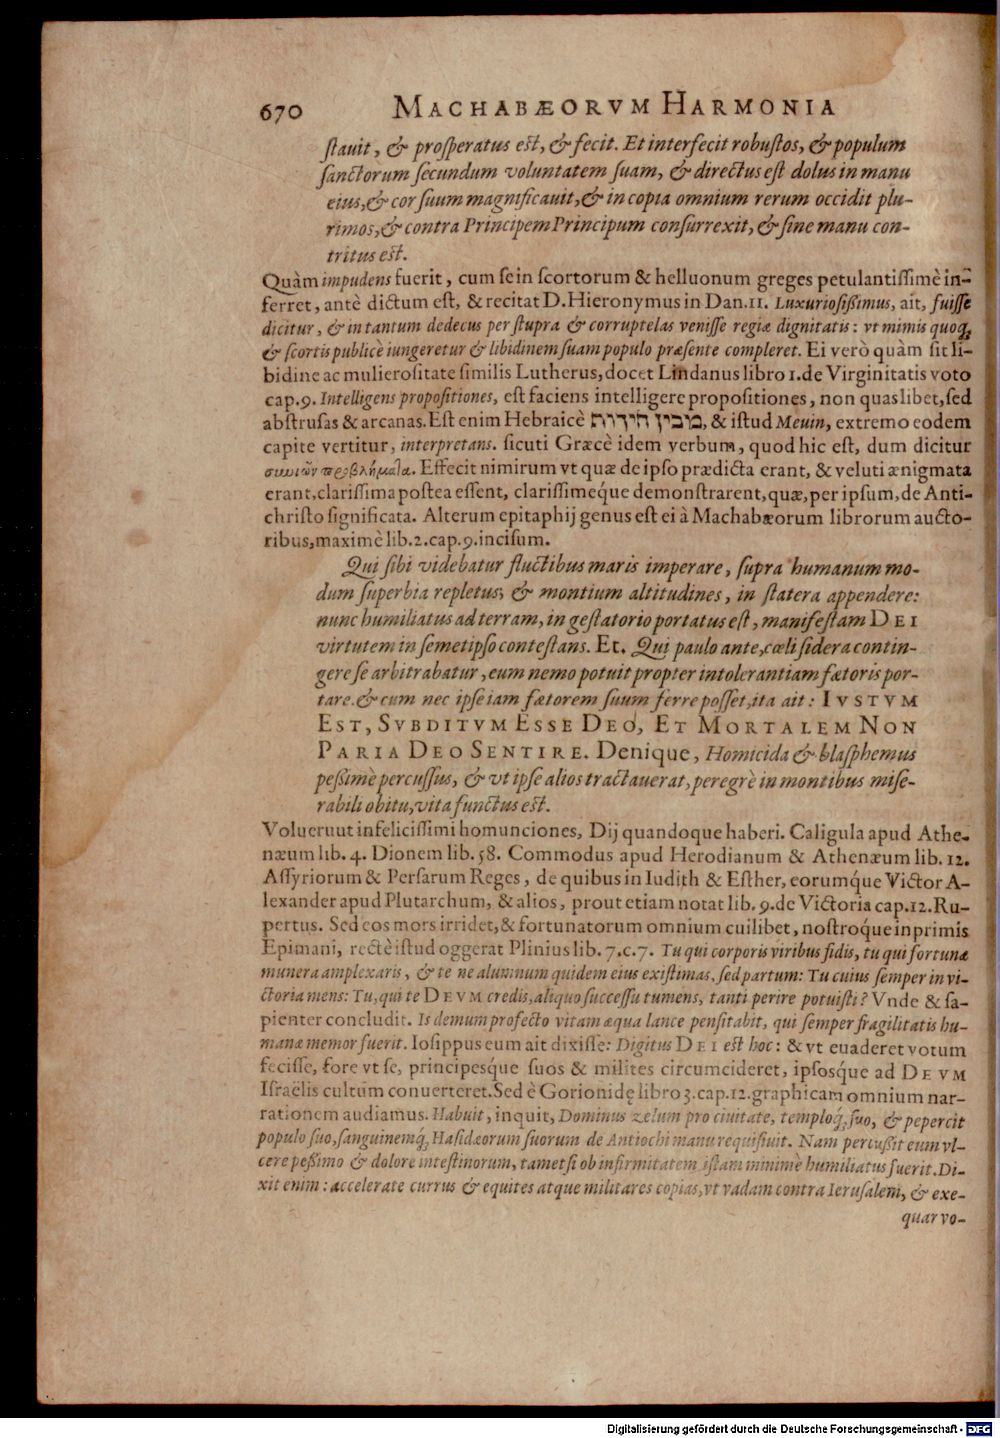 670 MACHABÆORVM HARMONIA
ſtauit, & proſperatus eſt, & fecit. Et interfecit robuſtos, & populum
ſanctorum ſecundum voluntatem ſuam, & directus eſt dolus in manu
eius, & cor ſuum magnificauit, & in copia omnium rerum occidit plu-
rimos, & contra Principem Principum conſurrexit, & ſine manu con-
tritus eſt.
Quàm impudens fuerit, cum ſe in ſcortorum & helluonum greges petulantiſſimè in-
ferret, antè dictum eſt, & recitat D. Hieronymus in Dan. 11. Luxurioſiſſimus, ait, fuiſſe
dicitur, & in tantum dedecus per ſtupra & corruptelas veniſſe regiæ dignitatis: vt mimis quoq;
& ſcortis publicè iungeretur & libidinem ſuam populo præſente compleret. Ei verò quàm ſit li-
bidine ac mulieroſitate ſimilis Lutherus, docet Lindanus libro 1. de Virginitatis voto
cap. 9. Intelligens propoſitiones, eſt faciens intelligere propoſitiones, non quaslibet, ſed
abſtruſas & arcanas. Eſt enim Hebraicè מבין חידות, & iſtud Meuin, extremo eodem
capite vertitur, interpretans. ſicuti Græcè idem verbum, quod hic eſt, dum dicitur
συνιῶν προβλήματα. Effecit nimirum vt quæ de ipſo prædicta erant, & veluti ænigmata
erant, clariſſima poſtea eſſent, clariſſimeq́ue demonſtrarent, quæ, per ipſum, de Anti-
chriſto ſignificata. Alterum epitaphij genus eſt ei à Machabæorum librorum aucto-
ribus, maximè lib. 2. cap. 9. inciſum.
Qui ſibi videbatur fluctibus maris imperare, ſupra humanum mo-
dum ſuperbia repletus, & montium altitudines, in ſtatera appendere:
nunc humiliatus ad terram, in geſtatorio portatus eſt, manifeſtam DEI
virtutem in ſemetipſo conteſtans. Et. Qui paulo ante, cœli ſidera contin-
gere ſe arbitrabatur, eum nemo potuit propter intolerantiam fætoris por-
tare. & cum nec ipſe iam fætorem ſuum ferre poſſet, ita ait: IVSTVM
EST, SVBDITVM ESSE DEO, ET MORTALEM NON
PARIA DEO SENTIRE. Denique, Homicida & blaſphemus
peſſimè percuſſus, & vt ipſe alios tractauerat, peregrè in montibus miſe-
rabili obitu, vita functus eſt.
Volueruut infeliciſſimi homunciones, Dij quandoque haberi. Caligula apud Athe-
næum lib. 4. Dionem lib. 58. Commodus apud Herodianum & Athenæum lib. 12.
Aſſyriorum & Perſarum Reges, de quibus in Iudith & Eſther, eorumq́ue Victor A-
lexander apud Plutarchum, & alios, prout etiam notat lib. 9. de Victoria cap. 12. Ru-
pertus. Sed eos mors irridet, & fortunatorum omnium cuilibet, noſtroq́ue inprimis
Epimani, rectè iſtud oggerat Plinius lib. 7. c. 7. Tu qui corporis viribus fidis, tu qui fortunæ
munera amplexaris, & te ne alumnum quidem eius exiſtimas, ſed partum: Tu cuius ſemper in vi-
ctoria mens: Tu, qui te DEVM credis, aliquo ſucceſſu tumens, tanti perire potuiſti? Vnde & ſa-
pienter concludit. Is demum profecto vitam æqua lance penſitabit, qui ſemper fragilitatis hu-
manæ memor fuerit. Ioſippus eum ait dixiſſe: Digitus DEI eſt hoc: & vt euaderet votum
feciſſe, fore vt ſe, principesq́ue ſuos & milites circumcideret, ipſosq́ue ad DEVM
Iſraëlis cultum conuerteret. Sed è Gorionidę libro 3. cap. 12. graphicam omnium nar-
rationem audiamus. Habuit, inquit, Dominus zelum pro ciuitate, temploq́; ſuo, & pepercit
populo ſuo, ſanguinemq́; Haſidæorum ſuorum de Antiochi manu requiſiuit. Nam percuſſit eum vl-
cere peſſimo & dolore inteſtinorum, tametſi ob infirmitatem iſtam minimè humiliatus fuerit. Di-
xit enim: accelerate currus & equites atque militares copias, vt vadam contra Ieruſalem, & exe-
quar vo-
Digitalisierung gefördert durch die Deutsche Forschungsgemeinschaft - DFG